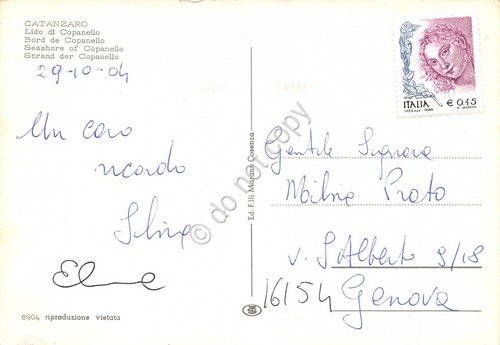 CATANZARO
Lido di Copanello
Bord de Copanello
Seashore of Copanello
Strand der Copanello
29-10-04
Un caro
ricordo
Silvia
8904 riproduzione vietata
Ed. F.lli Morano Cosenza
do not copy
ITALIA
€ 0,45
Gentile Signora
Prato
V. S. Alberto 9/18
16154 Genova